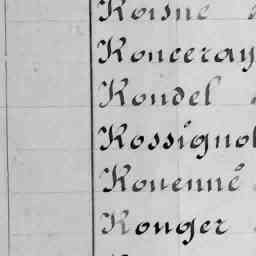 Roisne
Ronceray
Rondel
Rossignol
Rouenné
Rouger